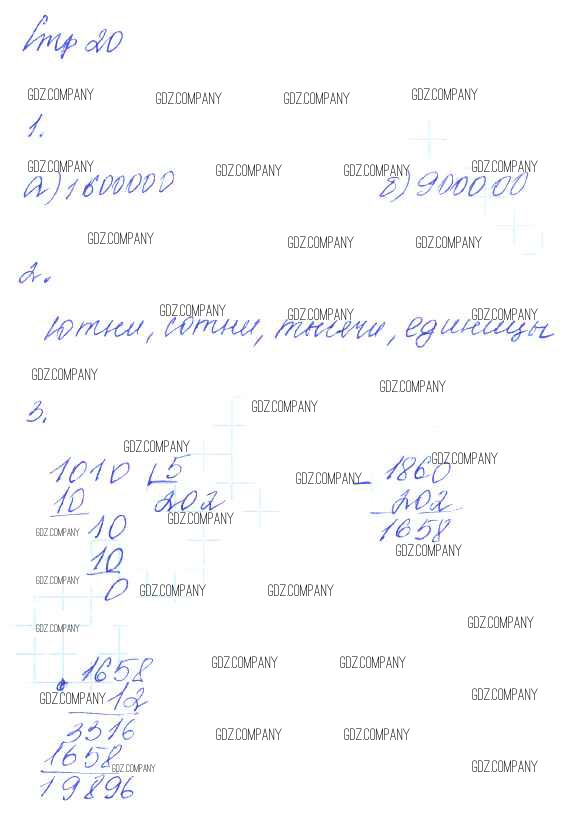 Стр 20
GDZ.COMPANY GDZ.COMPANY GDZ.COMPANY GDZ.COMPANY
1.
GDZ.COMPANY GDZ.COMPANY GDZ.COMPANY GDZ.COMPANY
а) 1600000 б) 900000
GDZ.COMPANY GDZ.COMPANY GDZ.COMPANY
2.
GDZ.COMPANY GDZ.COMPANY GDZ.COMPANY
сотни, сотни, тысячи, единицы
GDZ.COMPANY GDZ.COMPANY
3. GDZ.COMPANY
GDZ.COMPANY GDZ.COMPANY
1010 5 - 1860
GDZ.COMPANY
10 202 202
GDZ.COMPANY
10 1658
GDZ.COMPANY GDZ.COMPANY
10
GDZ.COMPANY
0 GDZ.COMPANY GDZ.COMPANY
GDZ.COMPANY GDZ.COMPANY
1658 GDZ.COMPANY GDZ.COMPANY
GDZ.COMPANY 12 GDZ.COMPANY
3316 GDZ.COMPANY GDZ.COMPANY
1658
GDZ.COMPANY GDZ.COMPANY
19896